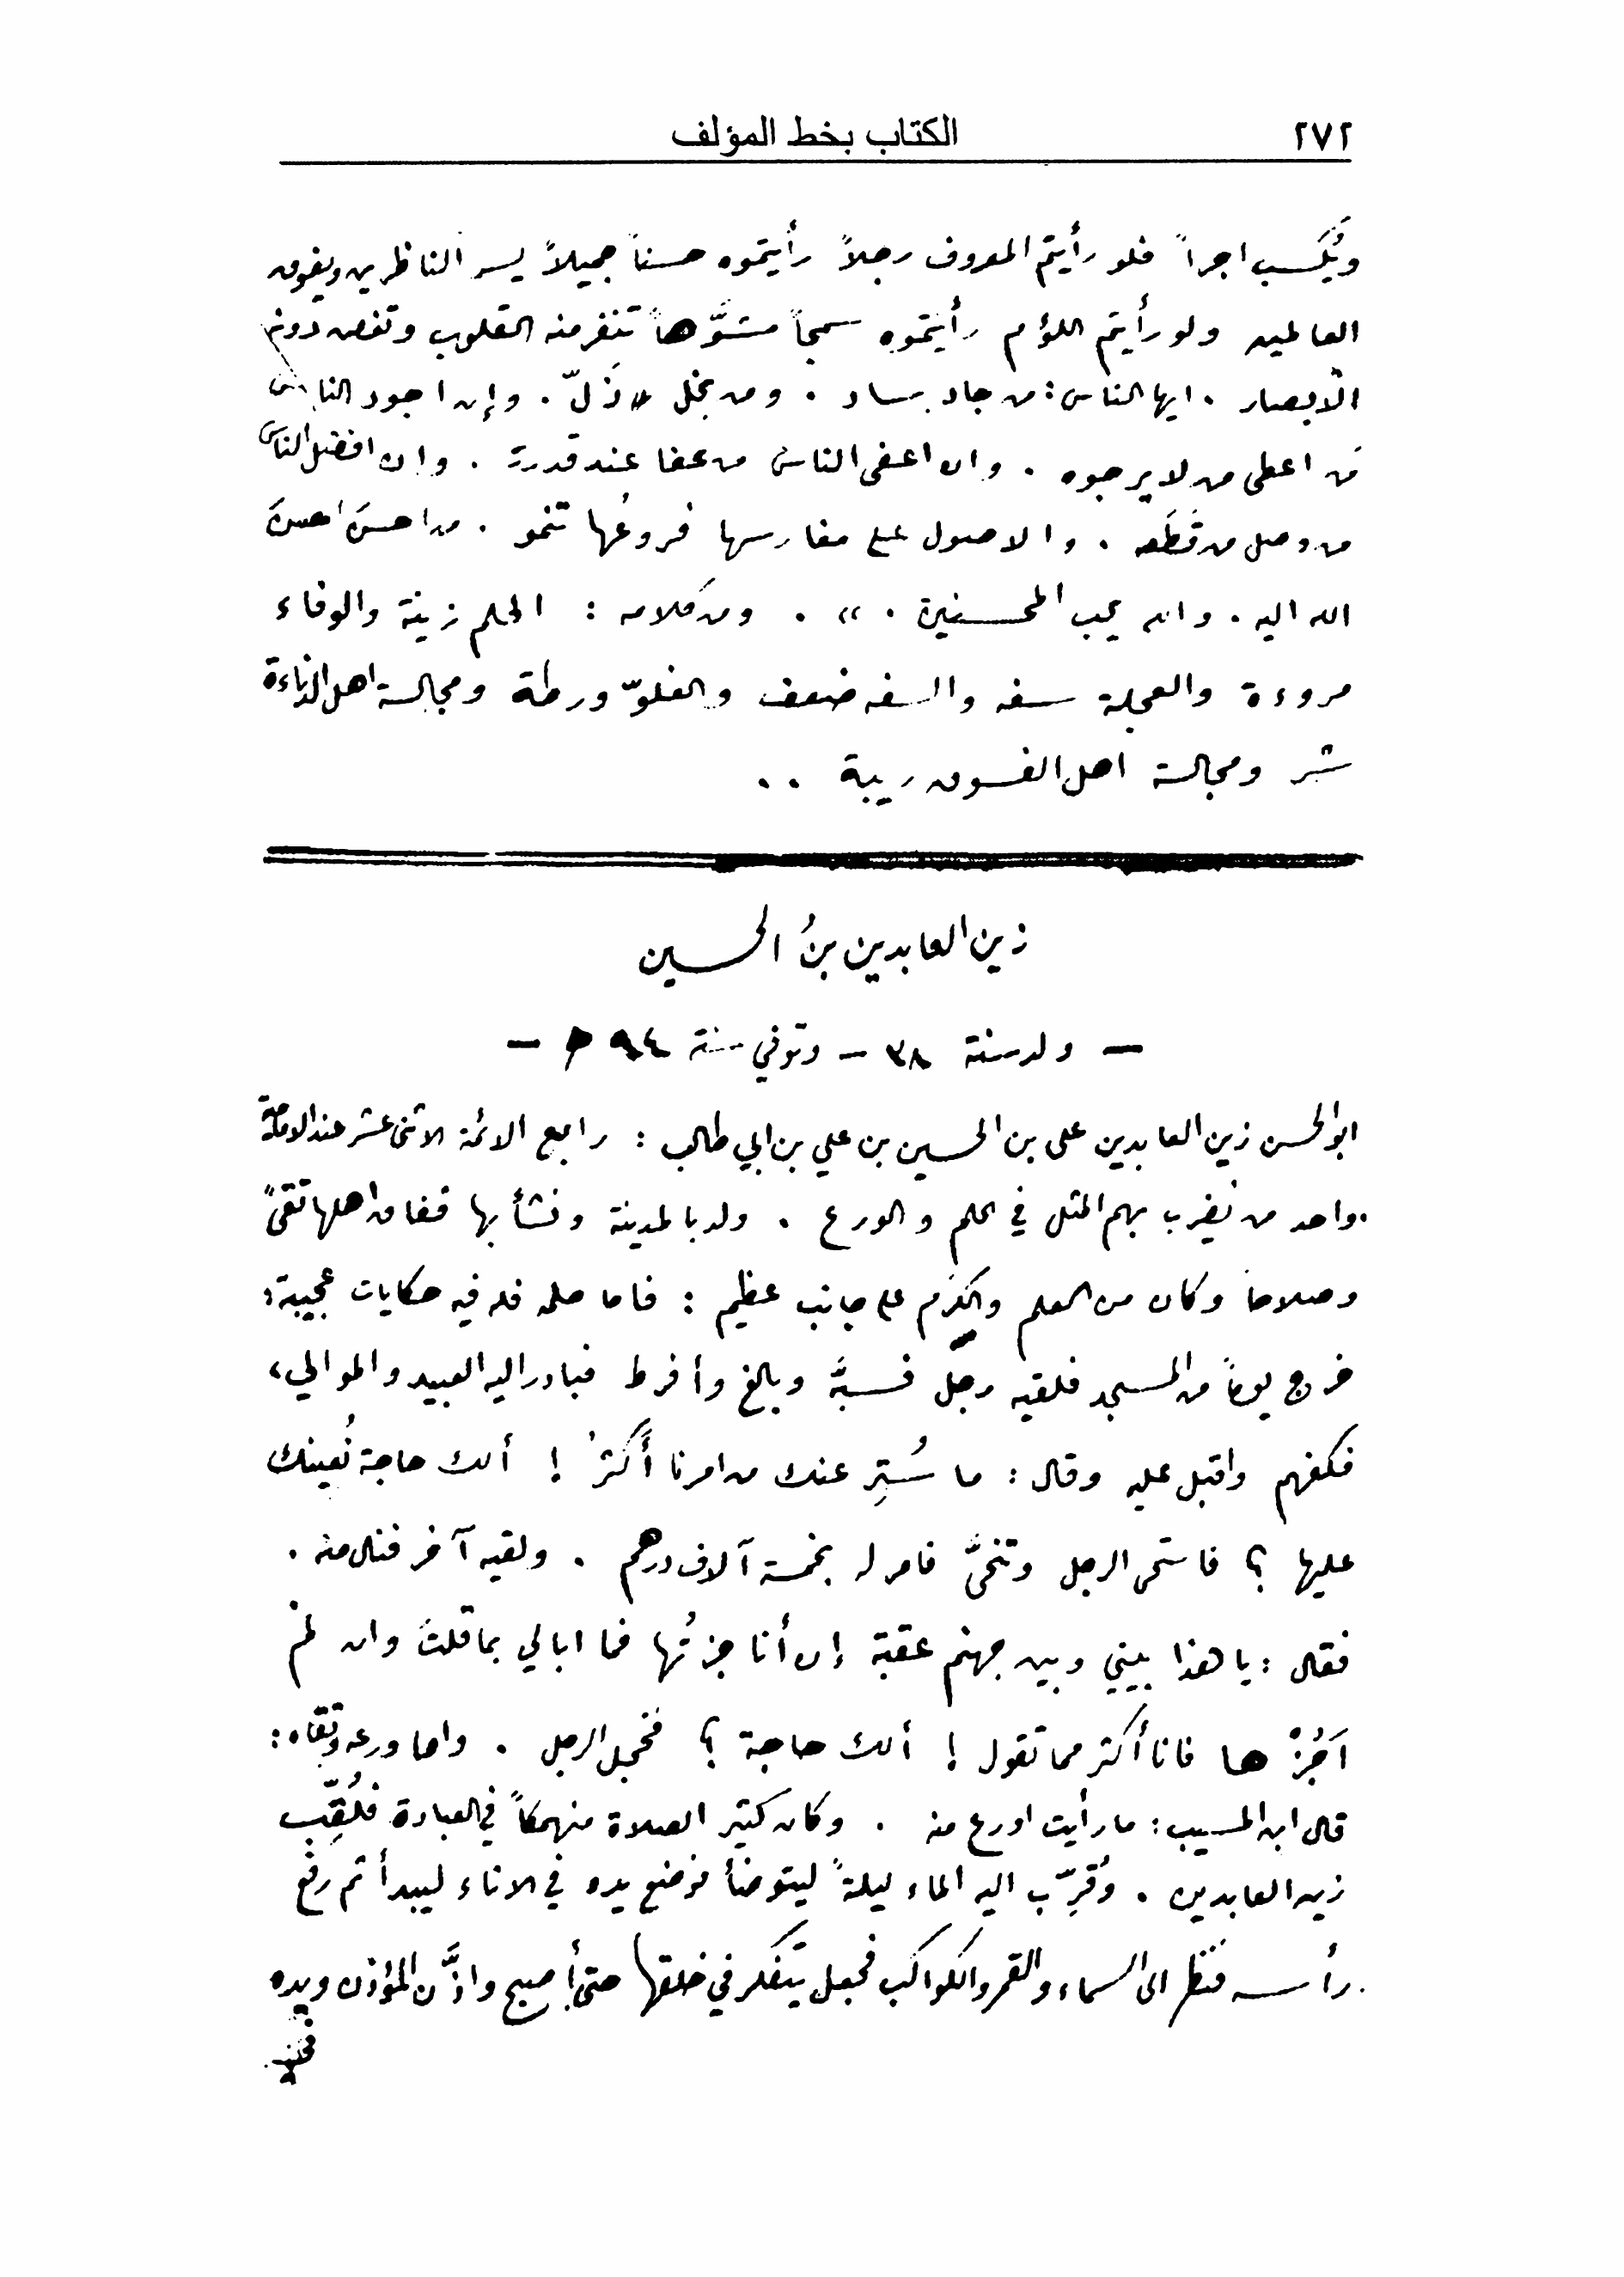 ٢٧٢ الكتاب بخط المؤلف
ويُكسب اجراً فلو رأيتم المعروف رجلاً رأيتموه حسناً جميلاً يسر الناظرين ويفوق
العالمين ولو رأيتم اللؤم رأيتموه سمجاً مشوَّهاً تنفر منه القلوب وتغض دونه
الابصار . ايها الناس : من جاد ساد . ومن بخل ذَلّ . وإن اجود الناس
مَن اعطى من لا يرجوه . وان اعفى الناس من عفا عند قدرة . وان افضل الناس
من وصل من قَطَعه . والاصول على مغارسها فروعُها تنمو . من احسنَ احسنَ
الله اليه . والله يحب المحسنين . » . ومن كلامه : الحلم زينة والوفاء
مروءة والعجلة سفه والسفه ضعف والغلوّ ورطة ومجالسة اهل الدناءة
شر ومجالسة اهل الفسوق ريبة . .
زين العابدين بنُ الحسين
— ولد سنة ٣٨ — وتوفي سنة ٩٤ ه —
ابو الحسن زين العابدين على بن الحسين بن علي بن ابي طالب : رابع الائمة الاثنى عشر عند الامامية
. واحد من يُضرب بهم المثل في الحلم والورع . ولد بالمدينة ونشأ بها ففاق اهلها تقىً
وصلاحاً وكان من الحلم والكرَم على جانب عظيم : فاما حلمه فله فيه حكايات عجيبة :
خرج يوماً من المسجد فلقيه رجل فسبَّه وبالغ وأفرط فبادر اليه العبيد والموالي ،
فكفهم واقبل عليه وقال : ما سُتِر عنك من امرنا أكثرُ ! ألك حاجة نُعينك
عليها ؟ فاستحى الرجل وتنحَّى فامر له بخمسة آلاف درهم . ولقيه آخر فنال منه .
فقال : يا هذا بيني وبين جهنم عقبة إن أنا جزتُها فما ابالي بما قلتَ وان لم
اَجُزْها فانا أكثر مما تقول ! ألك حاجة ؟ فخجل الرجل . واما ورعه وتقاه :
قال ابن المسيب : ما رأيت اورع منه . وكان كثير الصلاة منهمكاً في العبادة فلُقِّب
زين العابدين . وقُرِّب اليه الماء ليلةً ليتوضأ فوضع يده في الاناء ليبدأ ثم رفع
. رأسه فنظر الى السماء والقمر والكواكب فجعل يتفكر في خلقها حتى أصبح واذَّن المؤذن ويده